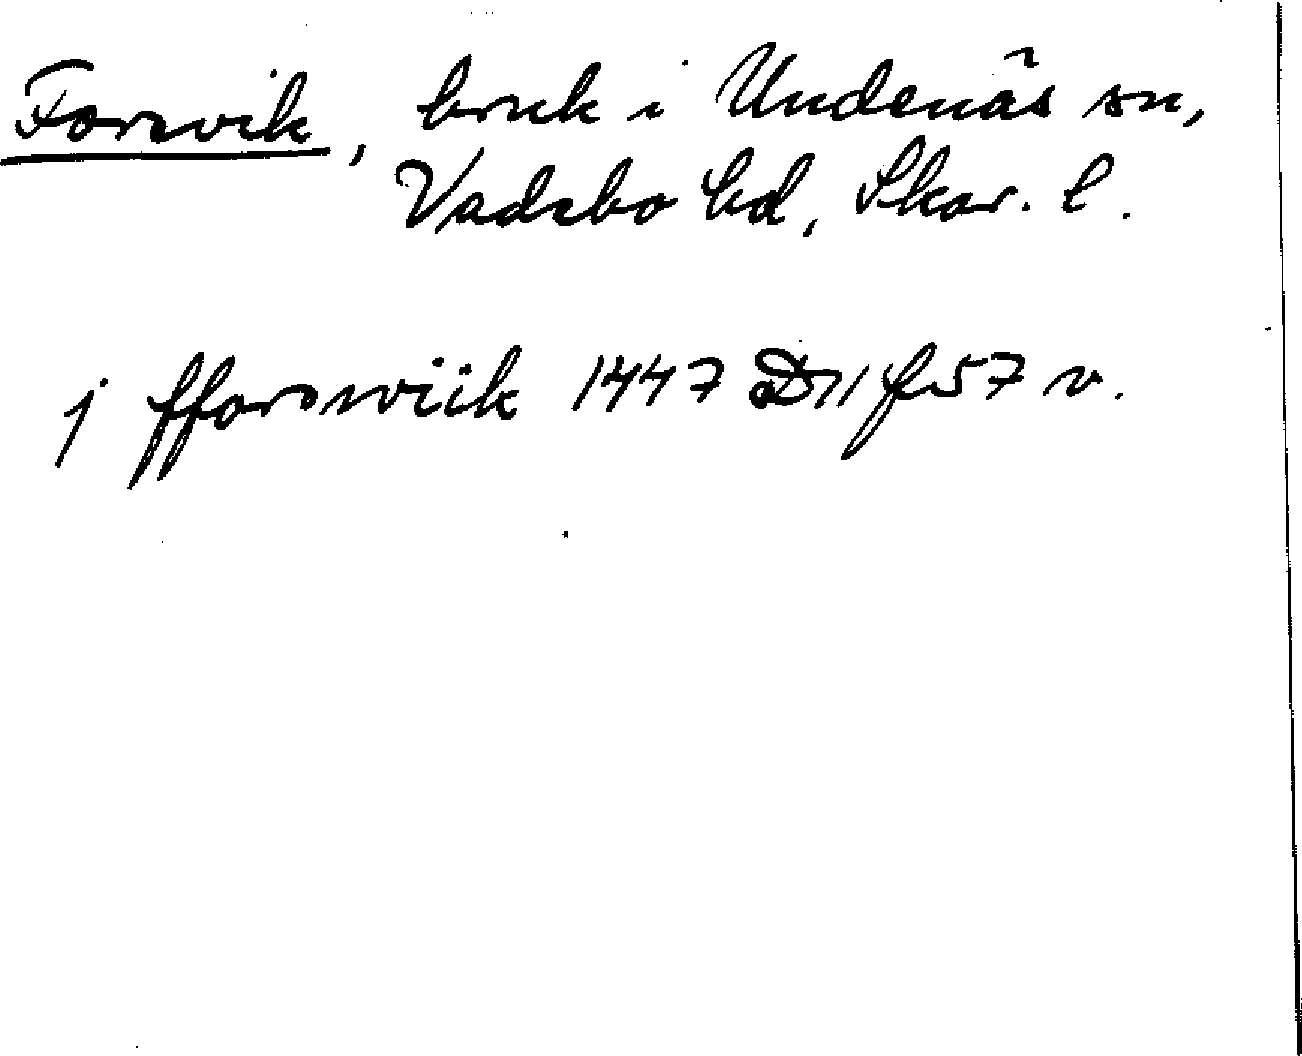 Forsvik, bruk i Undenäs sn,
Vadsbo hd, Skar. l.
j fforsswiik 1447 D11 f 57 v.